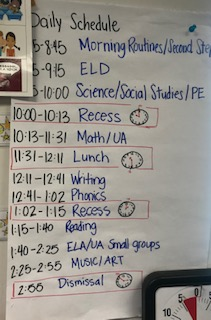 Daily Schedule
5-8:45 Morning Routines/Second Ste
5-9:15 ELD
5-10:00 Science/Social Studies/PE
10:00-10:13 Recess
10:13-11:31 Math/UA
11:31-12:11 Lunch
12:11-12:41 Writing
12:41-1:02 Phonics
1:02-1:15 Recess
1:15-1:40 Reading
1:40-2:25 ELA/UA Small groups
2:25-2:55 MUSIC/ART
2:55 Dismissal
10 5 0